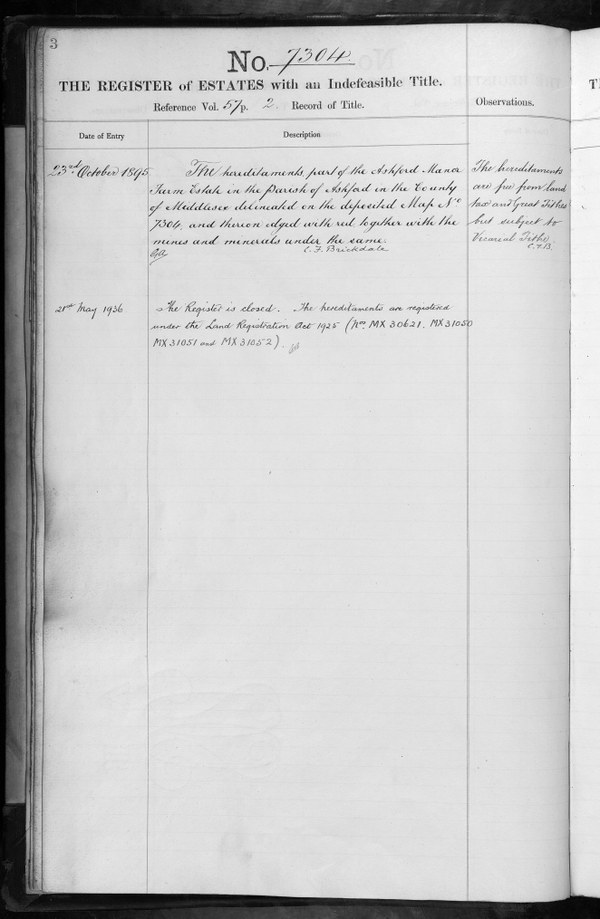 3
No. 7304
THE REGISTER of ESTATES with an Indefeasible Title.
Reference Vol. 57 p. 2 Record of Title.
Observations.
Date of Entry
Description
23rd October 1895
The hereditaments, part of the Ashford Manor
Farm Estate in the Parish of Ashford in the County
of Middlesex delineated on the deposited Map No
7304, and thereon edged with red together with the
mines and minerals under the same.
C. F. Brickdale
The hereditaments
are free from land
tax and Great Tithes
but subject to
Vicarial Tithe.
C.F.B.
21st May 1936
The Register is closed. The hereditaments are registered
under the Land Registration Act 1925 (Nos MX 30621, MX 31050
MX 31051 and MX 31052).